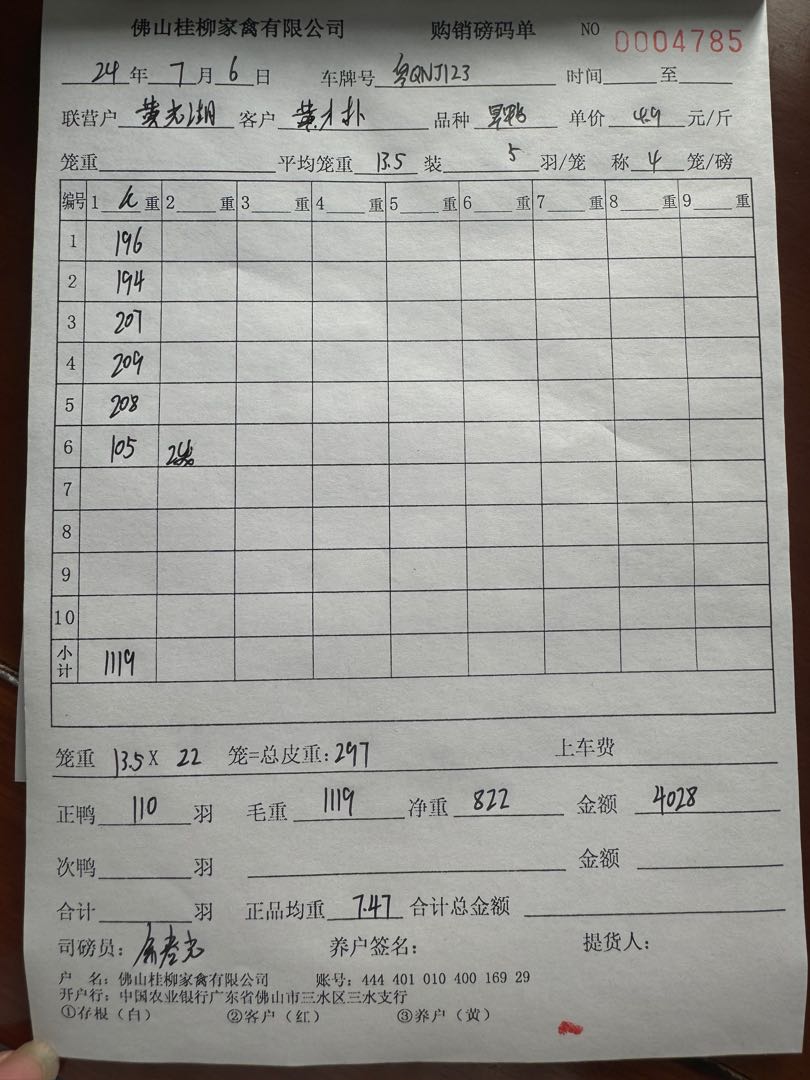 佛山桂柳家禽有限公司 购销磅码单 NO 0004785
24年 7月 6日 车牌号 粤QNJ123 时间____至____
联营户 黄志湖 客户 黄才扑 品种 旱鸭 单价 4.9 元/斤
笼重____ 平均笼重 13.5 装 5 羽/笼 称 4 笼/磅
编号 1 毛 重 2____重 3____重 4____重 5____重 6____重 7____重 8____重 9____重
1 196
2 194
3 207
4 209
5 208
6 105 2笼
7
8
9
10
小计 1119
笼重 13.5 X 22 笼=总皮重: 297 上车费
正鸭 110 羽 毛重 1119 净重 822 金额 4028
次鸭____羽 ____ 金额____
合计____羽 正品均重 7.47 合计总金额____
司磅员: 养户签名: 提货人:
户 名: 佛山桂柳家禽有限公司 账号: 444 401 010 400 169 29
开户行: 中国农业银行广东省佛山市三水区三水支行
①存根(白) ②客户(红) ③养户(黄)